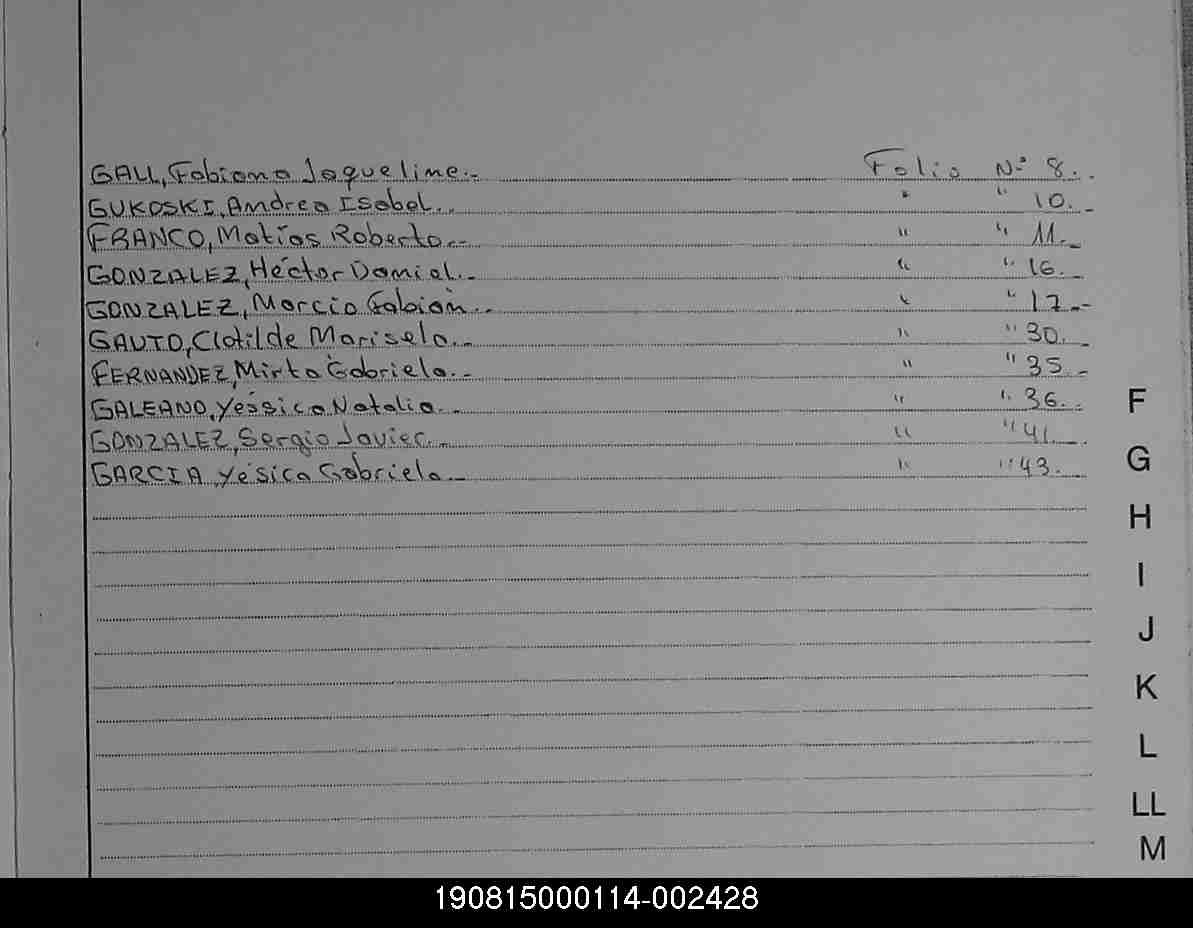 GALL, Fabiana Jaqueline.- Folio Nº 8.-
GUKOSKI, Andrea Isabel.- " " 10.-
FRANCO, Matías Roberto.- " " 11.-
GONZALEZ, Héctor Daniel.- " " 16.-
GONZALEZ, Marcio Fabián.- " " 17.-
GAUTO, Clotilde Marisela.- " " 30.-
FERNANDEZ, Mirta Gabriela.- " " 35.-
GALEANO, Yéssica Natalia.- " " 36.-
F
GONZALEZ, Sergio Javier.- " " 41.-
GARCIA Yésica Gabriela.- " " 43.-
G
H
I
J
K
L
LL
M
190815000114-002428